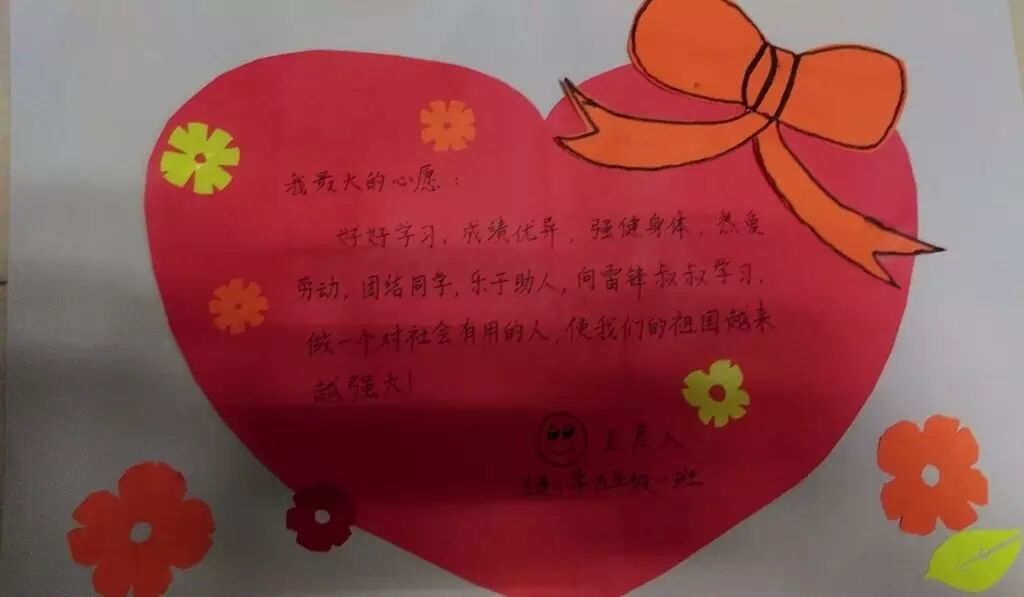 我最大的心愿：
好好学习，成绩优异，强健身体，热爱
劳动，团结同学，乐于助人，向雷锋叔叔学习，
做一个对社会有用的人，使我们的祖国越来
越强大！
王
小学五年级一班